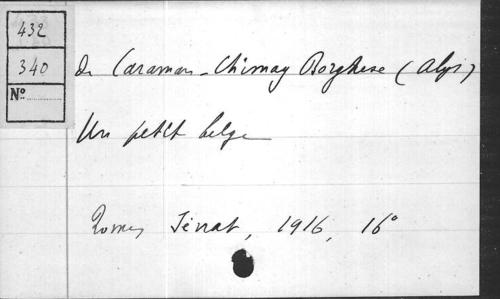 432
340
Nº
De Caraman-Chimay Borghese (Alys)
Un petit belge
Rome, Sénat, 1916, 16°